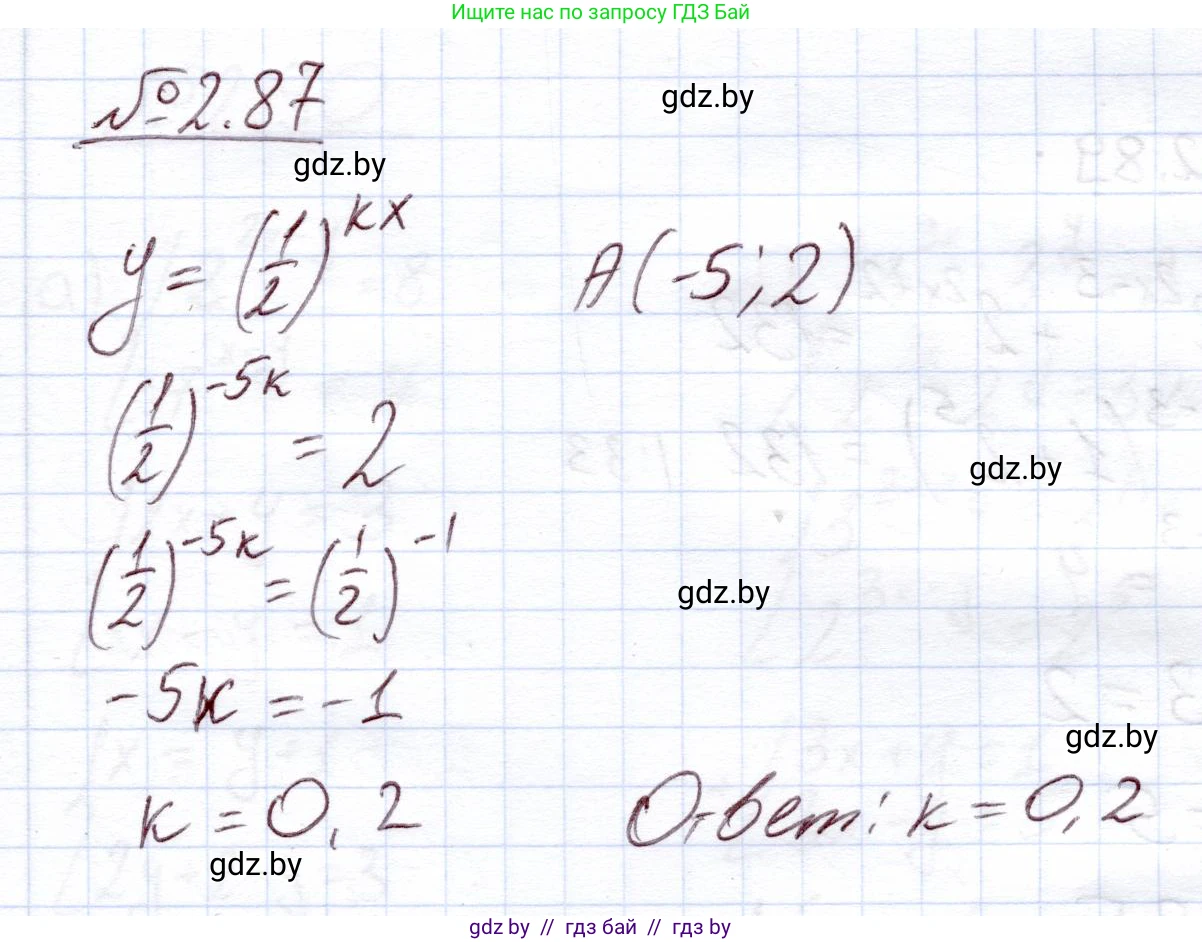 Ищите нас по запросу ГДЗ Бай
№2.87
gdz.by
gdz.by
y = (1/2)^kx A(-5; 2)
(1/2)^-5k = 2
gdz.by
(1/2)^-5k = (1/2)^-1
gdz.by
-5k = -1
gdz.by
k = 0,2 Ответ: k = 0,2
gdz.by
gdz by // гдз бай // гдз by